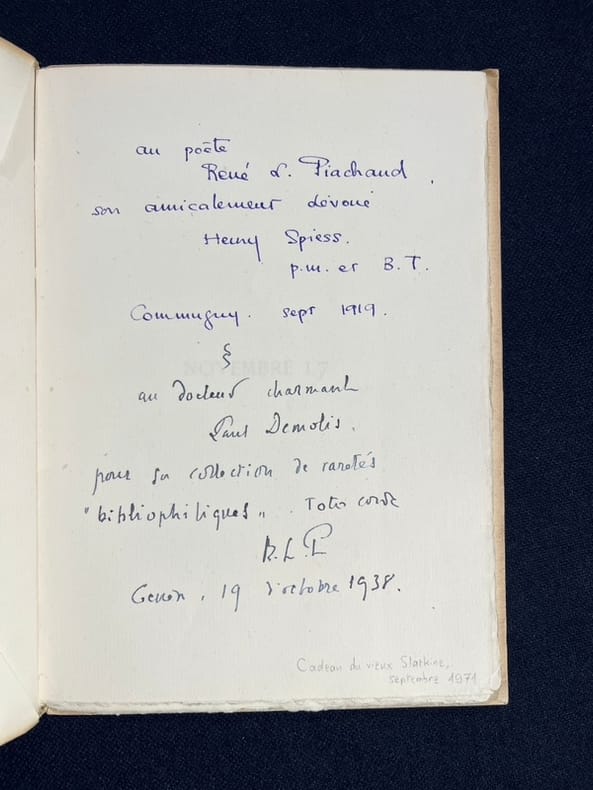 au poète
René L. Piachaud
son amicalement dévoué
Henry Spiess.
p.m. et B.T.
Commugny. sept 1919.
au docteur charmant
Paul Demolis.
pour sa collection de raretés
"bibliophiliques". Toto corde
R. L. P
Genève, 19 d'octobre 1938.
NOVEMBRE 17
Cadeau du vieux Slatkine,
septembre 1971